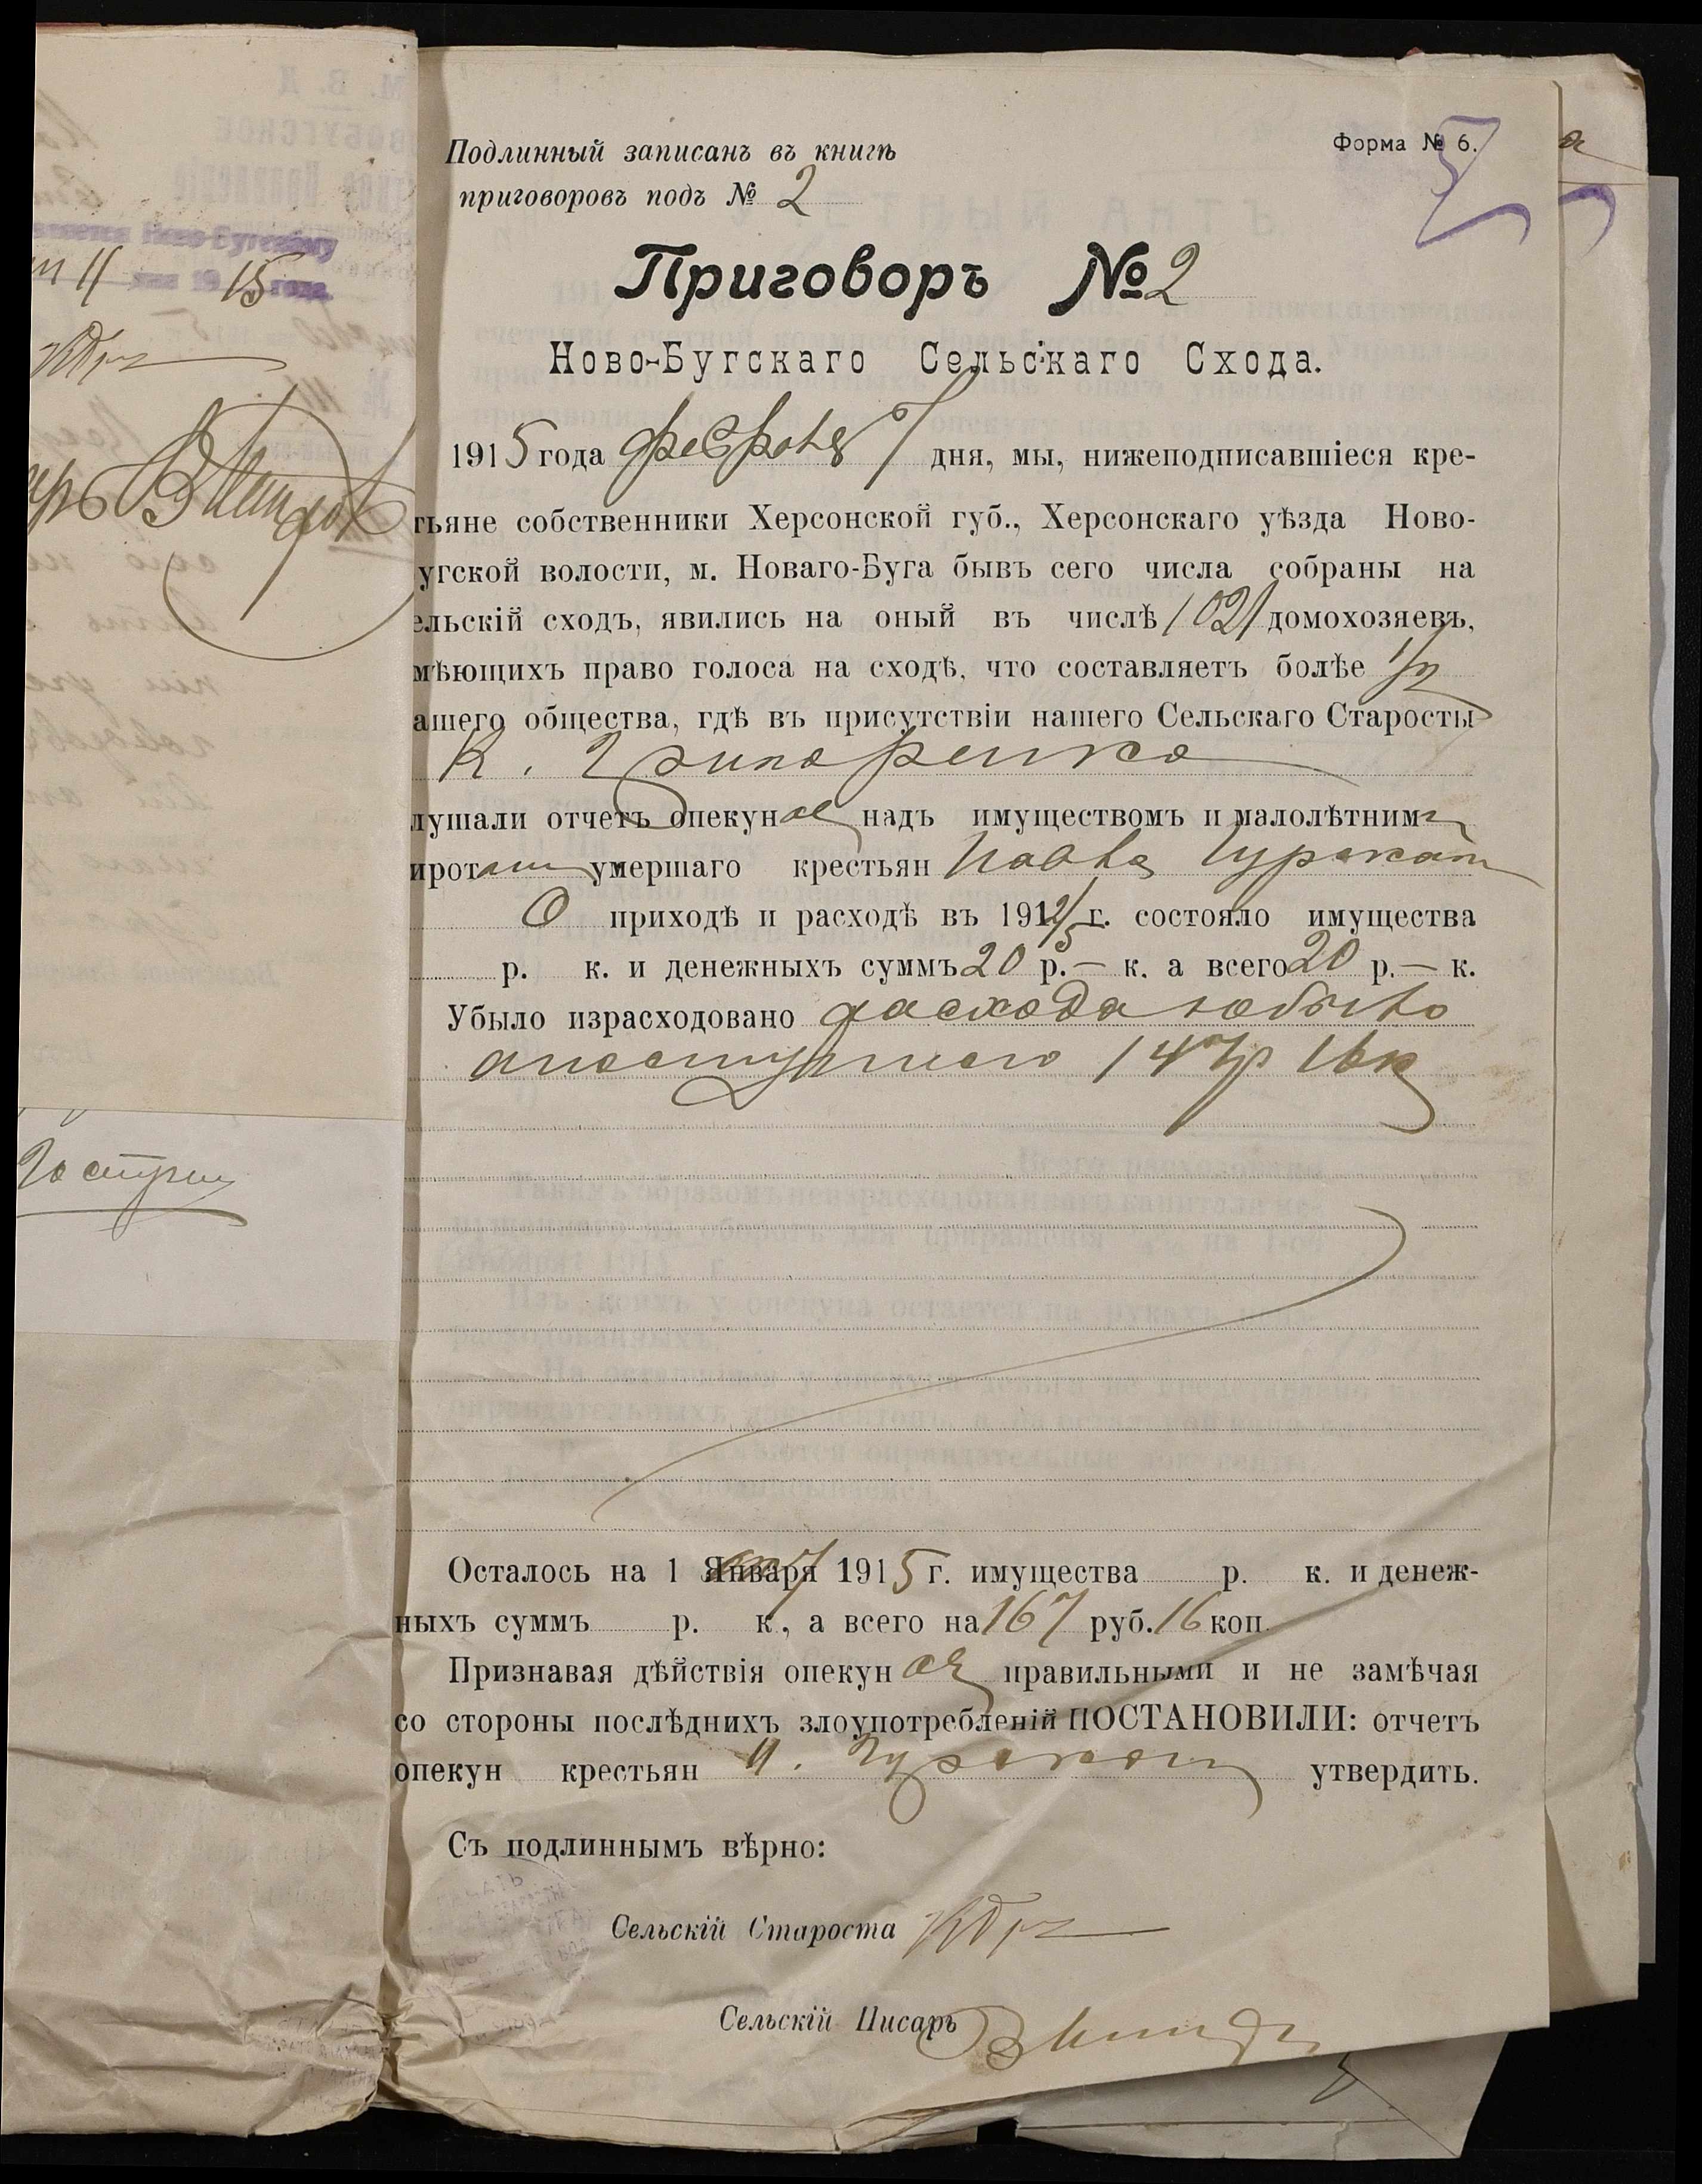 Подлинный записанъ въ книгѣ
Форма № 6.
приговоровъ подъ № 2
Приговоръ № 2
Ново-Бугскаго Сельскаго Схода.
1915 года февраля 7 дня, мы, нижеподписавшіеся кре-
тьяне собственники Херсонской губ., Херсонскаго уѣзда Ново-
угской волости, м. Новаго-Буга бывъ сего числа собраны на
ельскій сходъ, явились на оный въ числѣ 1021 домохозяевъ,
мѣющихъ право голоса на сходѣ, что составляетъ болѣе 1/2
ашего общества, гдѣ въ присутствіи нашего Сельскаго Старосты
К. Григоренко
лушали отчетъ опекун надъ имуществомъ и малолѣтними
иротами умершаго крестьян Павла
О приходѣ и расходѣ въ 191 г. состояло имущества
р. к. и денежныхъ суммъ 20 р. — к. а всего 20 р. — к.
Убыло израсходовано расхода не было
а поступило 147 р 16 к
Осталось на 1 Января 1915 г. имущества р. к. и денеж-
ныхъ суммъ р. к., а всего на 167 руб. 16 коп.
Признавая дѣйствія опекун правильными и не замѣчая
со стороны послѣднихъ злоупотребленій ПОСТАНОВИЛИ: отчетъ
опекун крестьян утвердить.
Съ подлиннымъ вѣрно:
Сельскій Староста
Сельскій Писарь